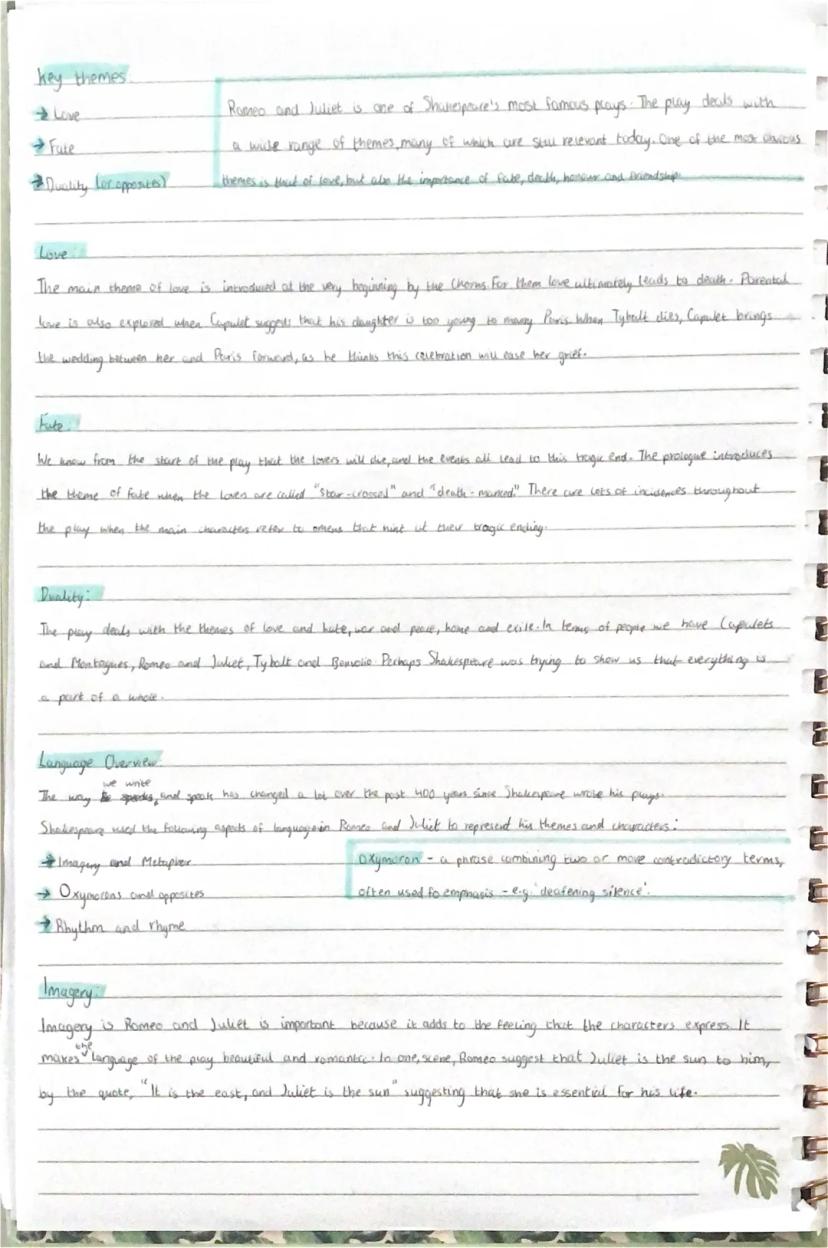 Key themes
→ Love
→ Fate
→ Duality (or opposites)
Romeo and Juliet is one of Shakespeare's most famous plays. The play deals with
a wide range of themes, many of which are still relevant today. One of the most obvious
themes is that of love, but also the importance of fate, death, honour and friendship.
Love:
The main theme of love is introduced at the very beginning by the Chorus. For them love ultimately leads to death. Parental
love is also explored when Capulet suggests that his daughter is too young to marry Paris. When Tybalt dies, Capulet brings
the wedding between her and Paris forward, as he thinks this celebration will ease her grief.
Fate:
We know from the start of the play that the lovers will die, and the events all lead to this tragic end. The prologue introduces
the theme of fate when the lovers are called "star-crossed" and "death-marked." There are lots of incidences throughout
the play when the main characters refer to omens that hint at their tragic ending.
Duality:
The play deals with the themes of love and hate, war and peace, home and exile. In terms of people we have Capulets
and Montagues, Romeo and Juliet, Tybalt and Benvolio. Perhaps Shakespeare was trying to show us that everything is
a part of a whole.
Language Overview
The way we write and speak has changed a lot over the past 400 years since Shakespeare wrote his plays.
Shakespeare used the following aspects of language in Romeo and Juliet to represent his themes and characters:
→ Imagery and Metaphor
→ Oxymorons and opposites
→ Rhythm and rhyme
Oxymoron - a phrase combining two or more contradictory terms,
often used fo emphasis - e.g. 'deafening silence'.
Imagery:
Imagery is Romeo and Juliet is important because it adds to the feeling that the characters express. It
makes the language of the play beautiful and romantic. In one, scene, Romeo suggest that Juliet is the sun to him,
by the quote, "It is the east, and Juliet is the sun" suggesting that she is essential for his life.